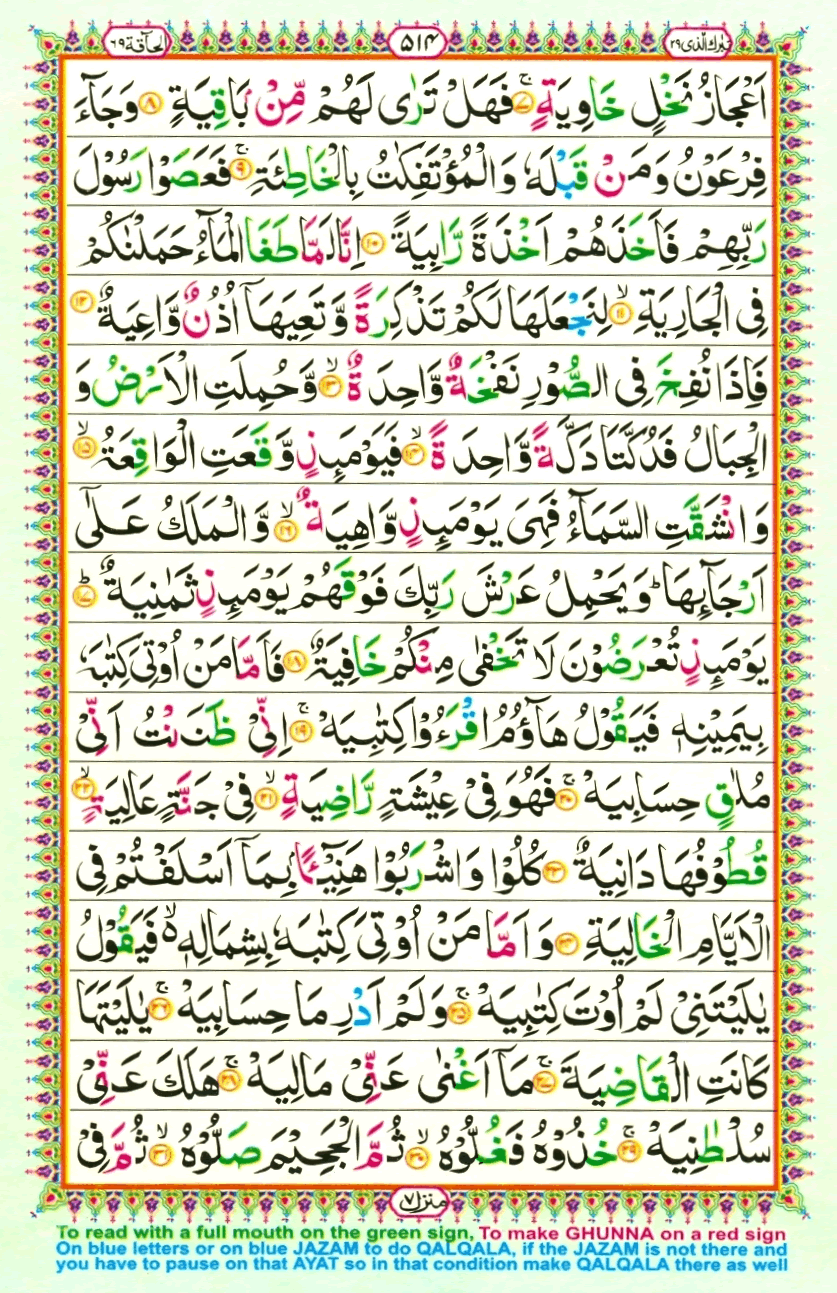 تبٰرك الّذی ۲۹
۵۱۴
الحآقة ۶۹
اَعْجَازُ نَخْلٍ خَاوِیَةٍ ۚ﴿۷﴾ فَهَلْ تَرٰى لَهُمْ مِّنْۢ بَاقِیَةٍ ﴿۸﴾ وَجَآءَ
فِرْعَوْنُ وَمَنْ قَبْلَهٗ وَالْمُؤْتَفِكٰتُ بِالْخَاطِئَةِ ۚ﴿۹﴾ فَعَصَوْا رَسُوْلَ
رَبِّهِمْ فَاَخَذَهُمْ اَخْذَةً رَّابِیَةً ﴿۱۰﴾ اِنَّا لَمَّا طَغَا الْمَآءُ حَمَلْنٰكُمْ
فِی الْجَارِیَةِ ۙ﴿۱۱﴾ لِنَجْعَلَهَا لَكُمْ تَذْكِرَةً وَّ تَعِیَهَاۤ اُذُنٌ وَّاعِیَةٌ ﴿۱۲﴾
فَاِذَا نُفِخَ فِی الصُّوْرِ نَفْخَةٌ وَّاحِدَةٌ ۙ﴿۱۳﴾ وَّحُمِلَتِ الْاَرْضُ وَ
الْجِبَالُ فَدُكَّتَا دَكَّةً وَّاحِدَةً ۙ﴿۱۴﴾ فَیَوْمَىِٕذٍ وَّقَعَتِ الْوَاقِعَةُ ۙ﴿۱۵﴾
وَ انْشَقَّتِ السَّمَآءُ فَهِیَ یَوْمَىِٕذٍ وَّاهِیَةٌ ۙ﴿۱۶﴾ وَّالْمَلَكُ عَلٰۤى
اَرْجَآىِٕهَا ؕ وَیَحْمِلُ عَرْشَ رَبِّكَ فَوْقَهُمْ یَوْمَىِٕذٍ ثَمٰنِیَةٌ ؕ﴿۱۷﴾
یَوْمَىِٕذٍ تُعْرَضُوْنَ لَا تَخْفٰى مِنْكُمْ خَافِیَةٌ ﴿۱۸﴾ فَاَمَّا مَنْ اُوْتِیَ كِتٰبَهٗ
بِیَمِیْنِهٖ فَیَقُوْلُ هَآؤُمُ اقْرَءُوْا كِتٰبِیَهْ ۚ﴿۱۹﴾ اِنِّیْ ظَنَنْتُ اَنِّیْ
مُلٰقٍ حِسَابِیَهْ ۚ﴿۲۰﴾ فَهُوَ فِیْ عِیْشَةٍ رَّاضِیَةٍ ۙ﴿۲۱﴾ فِیْ جَنَّةٍ عَالِیَةٍ ۙ﴿۲۲﴾
قُطُوْفُهَا دَانِیَةٌ ﴿۲۳﴾ كُلُوْا وَاشْرَبُوْا هَنِیْٓـًٔۢا بِمَاۤ اَسْلَفْتُمْ فِی
الْاَیَّامِ الْخَالِیَةِ ﴿۲۴﴾ وَ اَمَّا مَنْ اُوْتِیَ كِتٰبَهٗ بِشِمَالِهٖ ۙ۬ فَیَقُوْلُ
یٰلَیْتَنِیْ لَمْ اُوْتَ كِتٰبِیَهْ ۚ﴿۲۵﴾ وَلَمْ اَدْرِ مَا حِسَابِیَهْ ۚ﴿۲۶﴾ یٰلَیْتَهَا
كَانَتِ الْقَاضِیَةَ ۚ﴿۲۷﴾ مَاۤ اَغْنٰى عَنِّیْ مَالِیَهْ ۚ﴿۲۸﴾ هَلَكَ عَنِّیْ
سُلْطٰنِیَهْ ۚ﴿۲۹﴾ خُذُوْهُ فَغُلُّوْهُ ۙ﴿۳۰﴾ ثُمَّ الْجَحِیْمَ صَلُّوْهُ ۙ﴿۳۱﴾ ثُمَّ فِیْ
منزل ۷
To read with a full mouth on the green sign, To make GHUNNA on a red sign
On blue letters or on blue JAZAM to do QALQALA, if the JAZAM is not there and
you have to pause on that AYAT so in that condition make QALQALA there as well